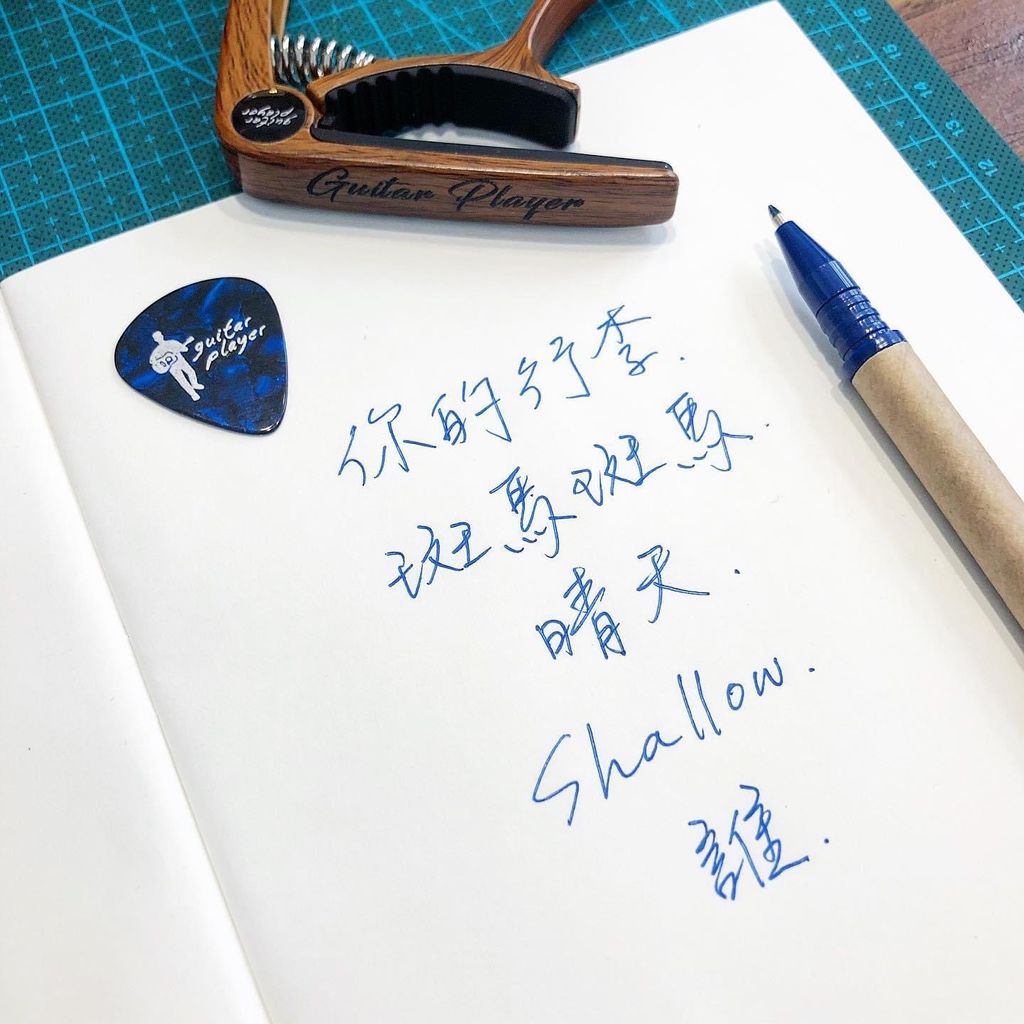 guitar
player
Guitar Player
15
14
13
12
guitar
player
你的行李.
斑馬斑馬.
晴天.
Shallow.
誰.